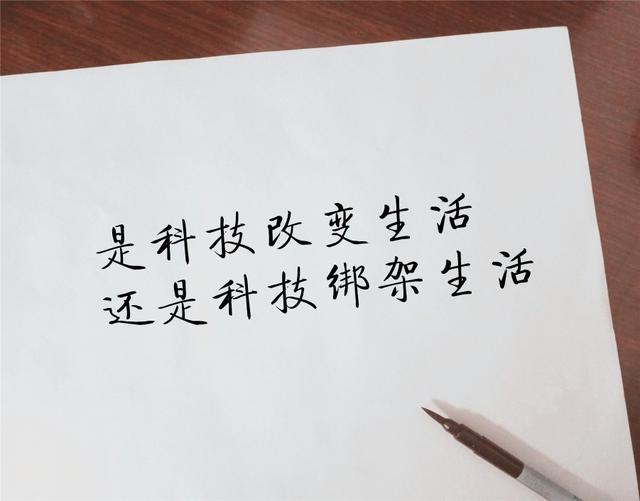 是科技改变生活
还是科技绑架生活